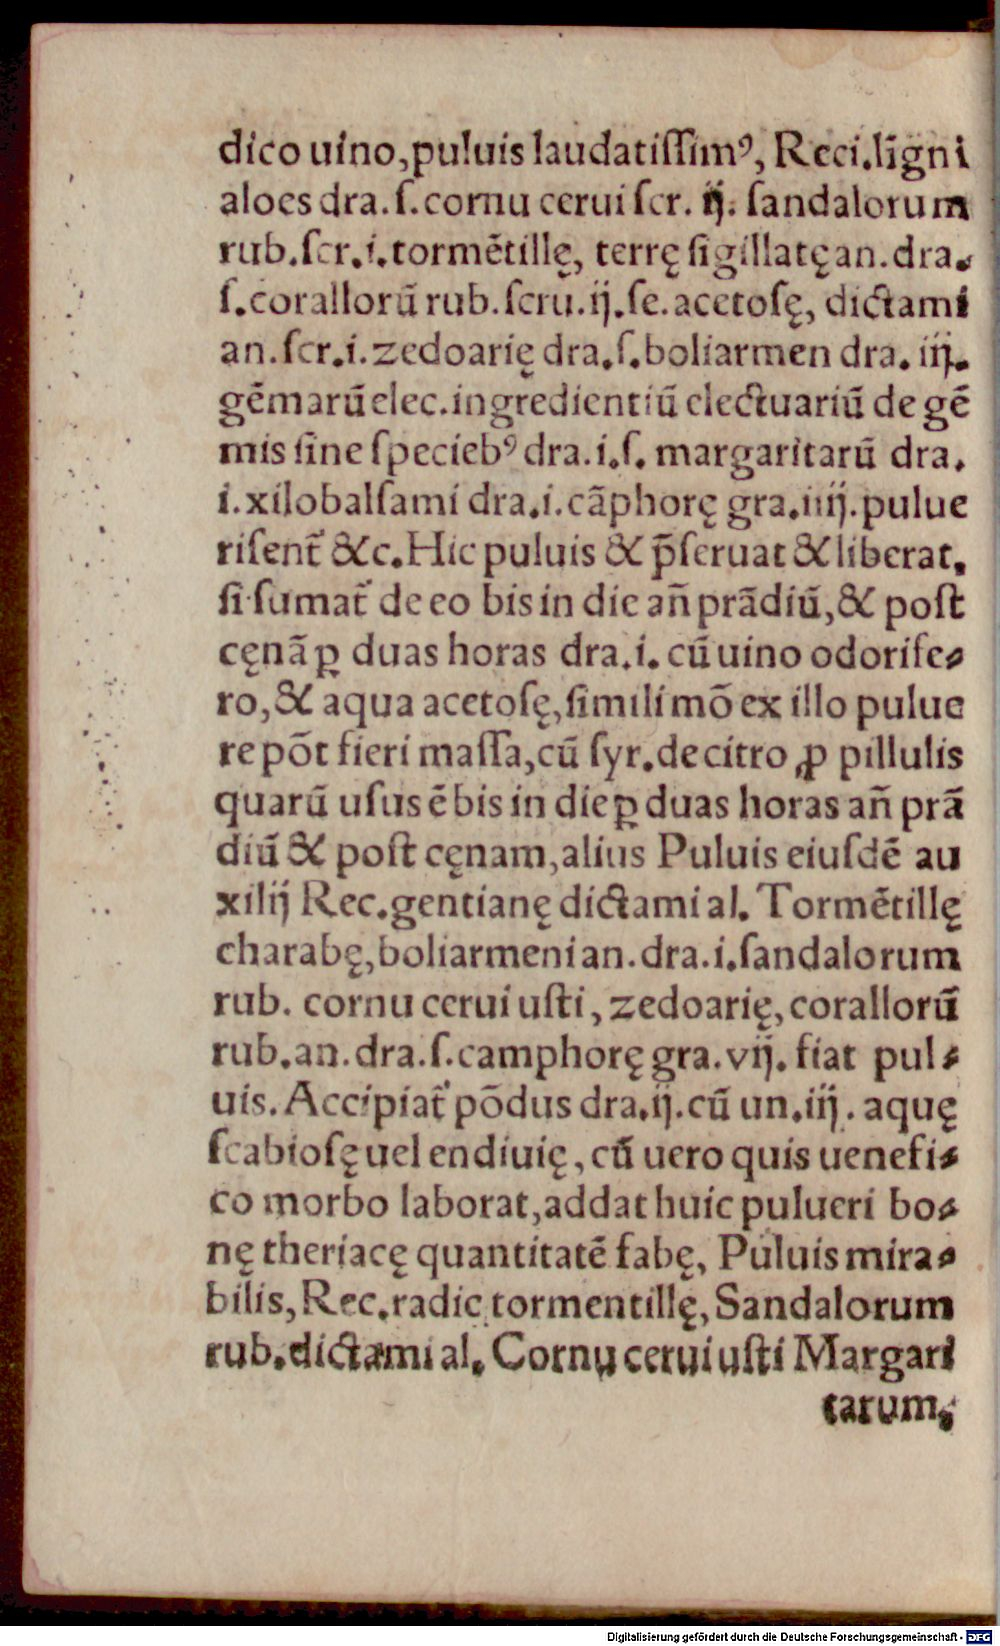 dico uino,puluis laudatiſſimꝰ, Reci.lïgni
aloes dra. ſ.cornu cerui ſcr. ij. ſandalorum
rub.ſcr.i.tormētillę, terrę ſigillatę an.dra.
ſ.corallorū rub.ſcru.ij.ſe.acetoſę, dictami
an.ſcr.i.zedoarię dra.ſ.boliarmen dra. iij.
gēmarū elec.ingredientiū electuariū de gē
mis ſine ſpeciebꝰ dra.i.ſ. margaritarū dra.
i.xilobalſami dra.i.cāphorę gra.iiij.pulue
riſent᷑ &c.Hic puluis & p̄ſeruat & liberat,
ſi ſumat᷑ de eo bis in die an̄ prādiū,& poſt
cęnā ꝑ duas horas dra.i.cū uino odorife⸗
ro,& aqua acetoſę,ſimili mō ex illo pulue
re pōt fieri maſſa,cū ſyr.de citro ꝓ pillulis
quarū uſus ē bis in die ꝑ duas horas an̄ prā
diū & poſt cęnam,alius Puluis eiuſdē au
xilij Rec.gentianę dictami al. Tormētillę
charabę,boliarmeni an.dra.i.ſandalorum
rub. cornu cerui uſti, zedoarię,corallorū
rub.an.dra.ſ.camphorę gra.vij. fiat pul⸗
uis. Accipiat᷑ pōdus dra.ij.cū un.iij. aquę
ſcabioſę uel endiuię, cū uero quis uenefi⸗
co morbo laborat,addat huic pulueri bo⸗
nę theriacę quantitatē fabę, Puluis mira⸗
bilis,Rec.radic tormentillę,Sandalorum
rub.dictami al. Cornu cerui uſti Margari
tarum,
Digitalisierung gefördert durch die Deutsche Forschungsgemeinschaft - DFG